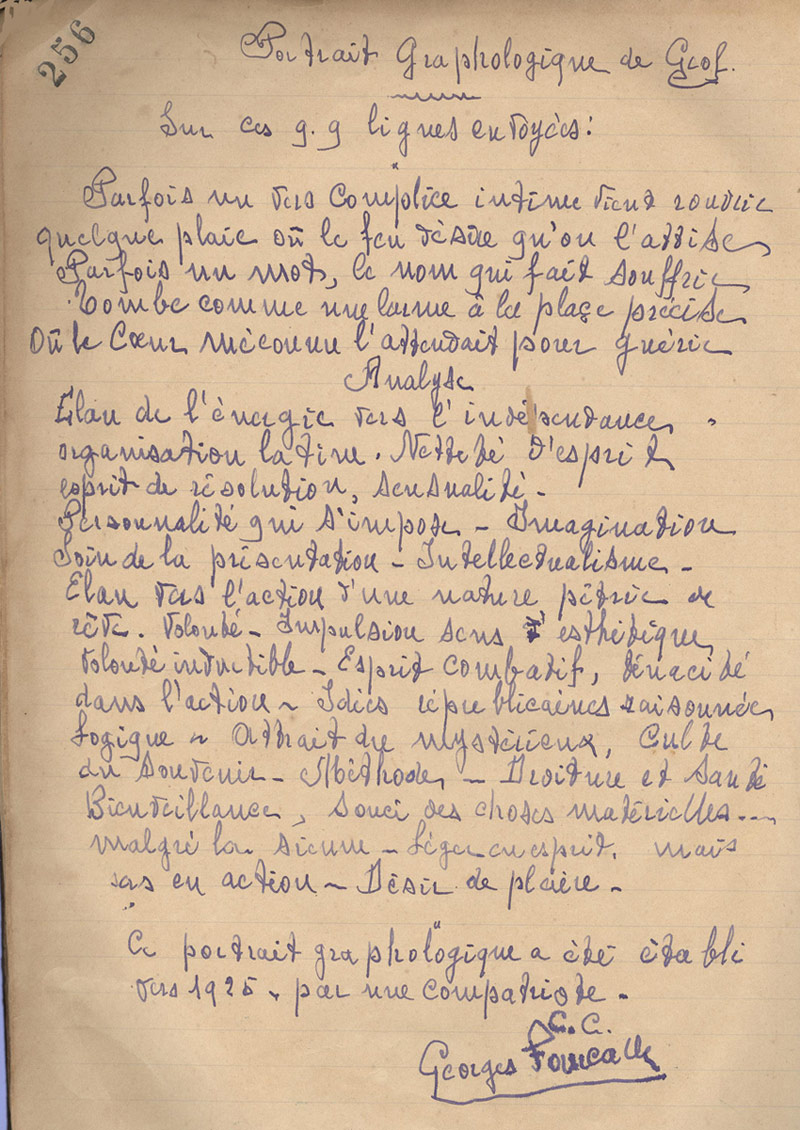 256
Portrait Graphologique de Geof.
Sur ces q.q lignes envoyées:
Parfois un vers complice intime vient rouvrir
quelque plaie où le feu désire qu'on l'attise,
Parfois un mot, le nom qui fait souffrir,
Tombe comme une larme à la place précise
Où le Cœur méconnu l'attendait pour guérir
Analyse
Elan de l'énergie vers l'indépendance,
organisation latine. Netteté d'esprit,
esprit de résolution, sensualité -
Personnalité qui s'impose - Imagination
Soin de la présentation - Intellectualisme -
Elan vers l'action d'une nature pétrie de
rêve. Volonté - Impulsion sens esthétique,
Volonté inductible - Esprit combatif, ténacité
dans l'action ~ Idées républicaines raisonnées
Logique ~ Attrait du mystérieux, Culte
du Souvenir - Méthode, - Droiture et Santé
Bienveillance, souci des choses matérielles...
malgré la sienne - Léger en esprit, mais
pas en action ~ Désir de plaire -
Ce portrait graphologique a été établi
vers 1925, par une compatriote -
C.C.
Georges Fourcade